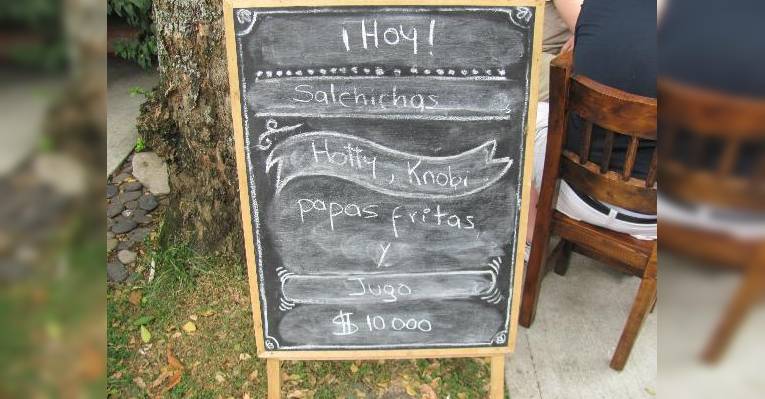 ¡Hoy!
Salchichas
Hotty, Knobi
papas fritas,
y
Jugo
$10000